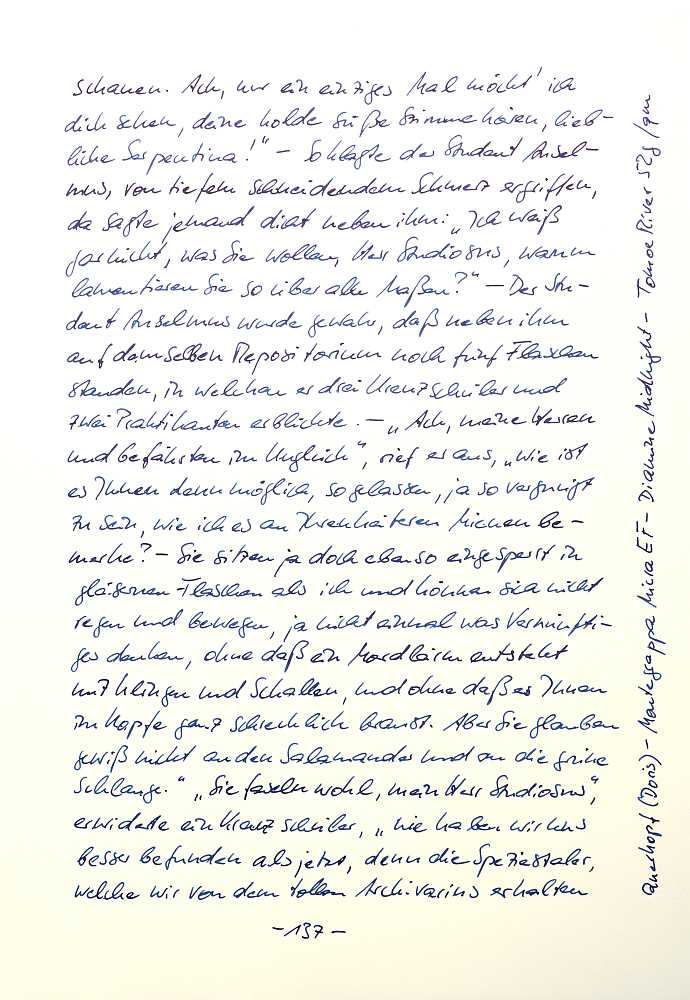 schauen. Ach, nur ein einziges Mal möcht' ich
dich sehen, deine holde süße Stimme hören, lieb-
liche Serpentina!" – So klagte der Student Ansel-
mus, von tiefem schneidendem Schmerz ergriffen,
da sagte jemand dicht neben ihm: „Ich weiß
gar nicht, was Sie wollen, Herr Studiosus, warum
lamentieren Sie so über alle Maßen?" – Der Stu-
dent Anselmus wurde gewahr, daß neben ihm
auf demselben Repositorium noch fünf Flaschen
standen, in welchen er drei Kreuzschüler und
zwei Praktikanten erblickte. – „Ach, meine Herren
und Gefährten im Unglück", rief er aus, „wie ist
es Ihnen denn möglich, so gelassen, ja so vergnügt
zu sein, wie ich es an Ihren heiteren Mienen be-
merke? – Sie sitzen ja doch ebenso eingesperrt in
gläsernen Flaschen als ich und können sich nicht
regen und bewegen, ja nicht einmal was Vernünfti-
ges denken, ohne daß ein Mordlärm entsteht
mit Klingen und Schallen, und ohne daß es Ihnen
im Kopfe ganz schrecklich braust. Aber Sie glauben
gewiß nicht an den Salamander und an die grüne
Schlange." „Sie faseln wohl, mein Herr Studiosus",
erwiderte ein Kreuzschüler, „nie haben wir uns
besser befunden als jetzt, denn die Speziestaler,
welche wir von dem tollen Archivarius erhalten
– 137 –
Querkopf (Doris) – Montegrappa Micra EF – Diamine Midnight – Tomoe River 52g/qm